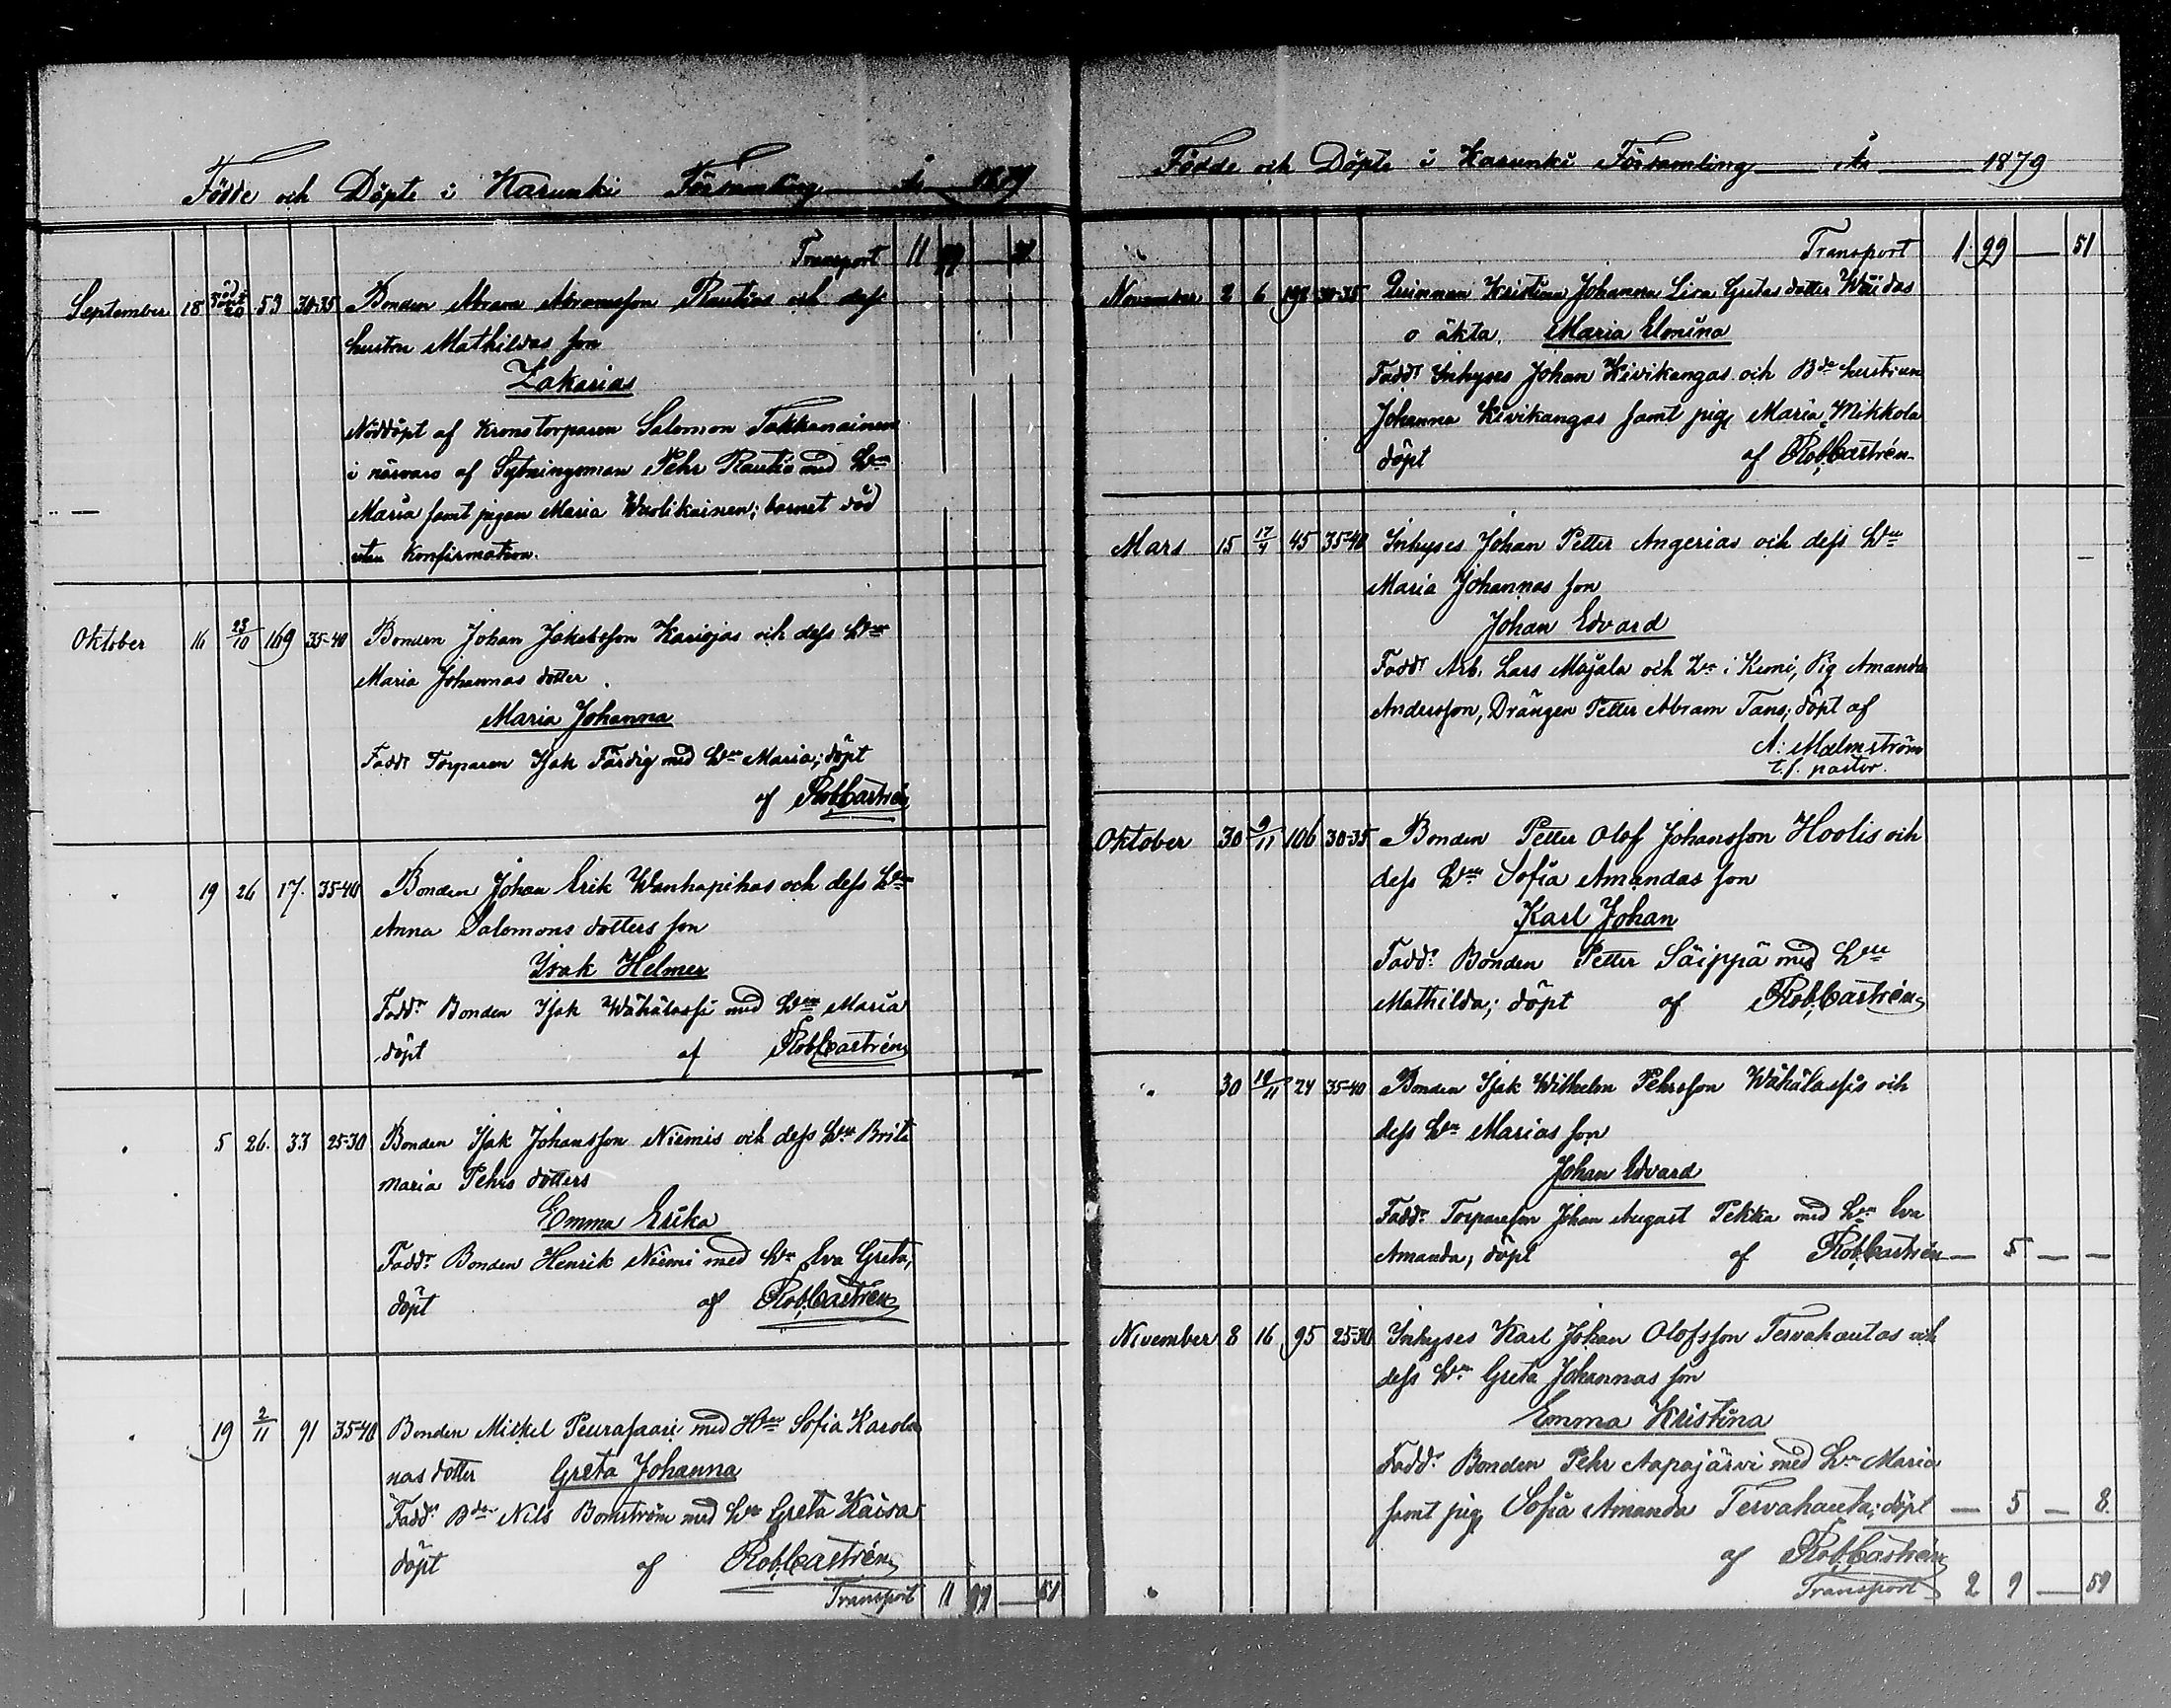 Födde och Döpte i Karunki Församling År 1879
Transport 11 99 — 51
September 18 53 30-35 Bonden Abram Abramsson Rautios och dess
hustru Mathildas son
Zakarias
Nöddöpt af Kronotorparen Salomon Takkanainen
i närvaro af Sytningsman Pehr Rautio med Hru
Maria samt pigan Maria Wuolikainen; barnet död
utan Konfirmation.
Oktober 16 23/10 169 35-40 Bonden Johan Jakobsson Karsojas och dess Hru
Maria Johannas dotter
Maria Johanna
Fadd: Torparen Isak Färdig med Hru Maria; döpt
af Rob. Castrén
" 19 26 17. 35-40 Bonden Johan Erik Wanhapihas och dess Hru
Anna Salomons dotters son
Isak Helmer
Fadd: Bonden Isak Wähälassi med Hru Maria
döpt af Rob. Castrén
" 5 26. 33 25-30 Bonden Isak Johansson Niemis och dess Hru Brita
maria Pehrs dotters
Emma Erika
Fadd: Bonden Henrik Niemi med Hru Eva Greta;
döpt af Rob. Castrén
" 19 2/11 91 35-40 Bonden Mickel Peurasaari med Hru Sofia Karoli
nas dotter Greta Johanna
Fadd: Bdn Nils Bomström med Hru Greta Kaisa
döpt af Rob. Castrén
Transport 11 99 — 51
Födde och Döpte i Karunki Församling År 1879
Transport 1 29 — 51
November 2 6 198 30-35 Qvinnan Kristina Johanna Lisa Gretas dotter Waidas
o äkta. Maria Elmina
Fadd: Inhyses Johan Kivikangas och Bde hustrun
Johanna Kivikangas samt pig Maria Mikkola
döpt af Rob. Castrén
Mars 15 17/4 45 35-40 Inhyses Johan Petter Angerias och dess Hru —
Maria Johannas son
Johan Edvard
Fadd: Arb. Lars Majala och Hru i Kemi, Pig Amanda
Andersson, Drängen Petter Abram Tano; döpt af
A: Malmström
t.f. pastor.
Oktober 30 9/11 106 30-35 Bonden Petter Olof Johansson Hoolis och
dess Hru Sofia Amandas son
Karl Johan
Fadd: Bonden Petter Säippä med Hru
Mathilda; döpt af Rob. Castrén
" 30 10/11 24 35-40 Bonden Isak Wilhelm Pehrsson Wähälassis och
dess Hru Marias son
Johan Edvard
Fadd: Torpareson Johan August Pekka med Hru Eva
Amanda; döpt af Rob. Castrén — 5 — —
November 8 16 95 25-30 Inhyses Karl Johan Olofsson Tervahautas och
dess Hru Greta Johannas son
Emma Kristina
Fadd: Bonden Pehr Aapajärvi med Hru Maria
samt pig Sofia Amanda Tervahauta; döpt — 5 — 8.
af Rob. Castrén
Transport 2 9 — 59